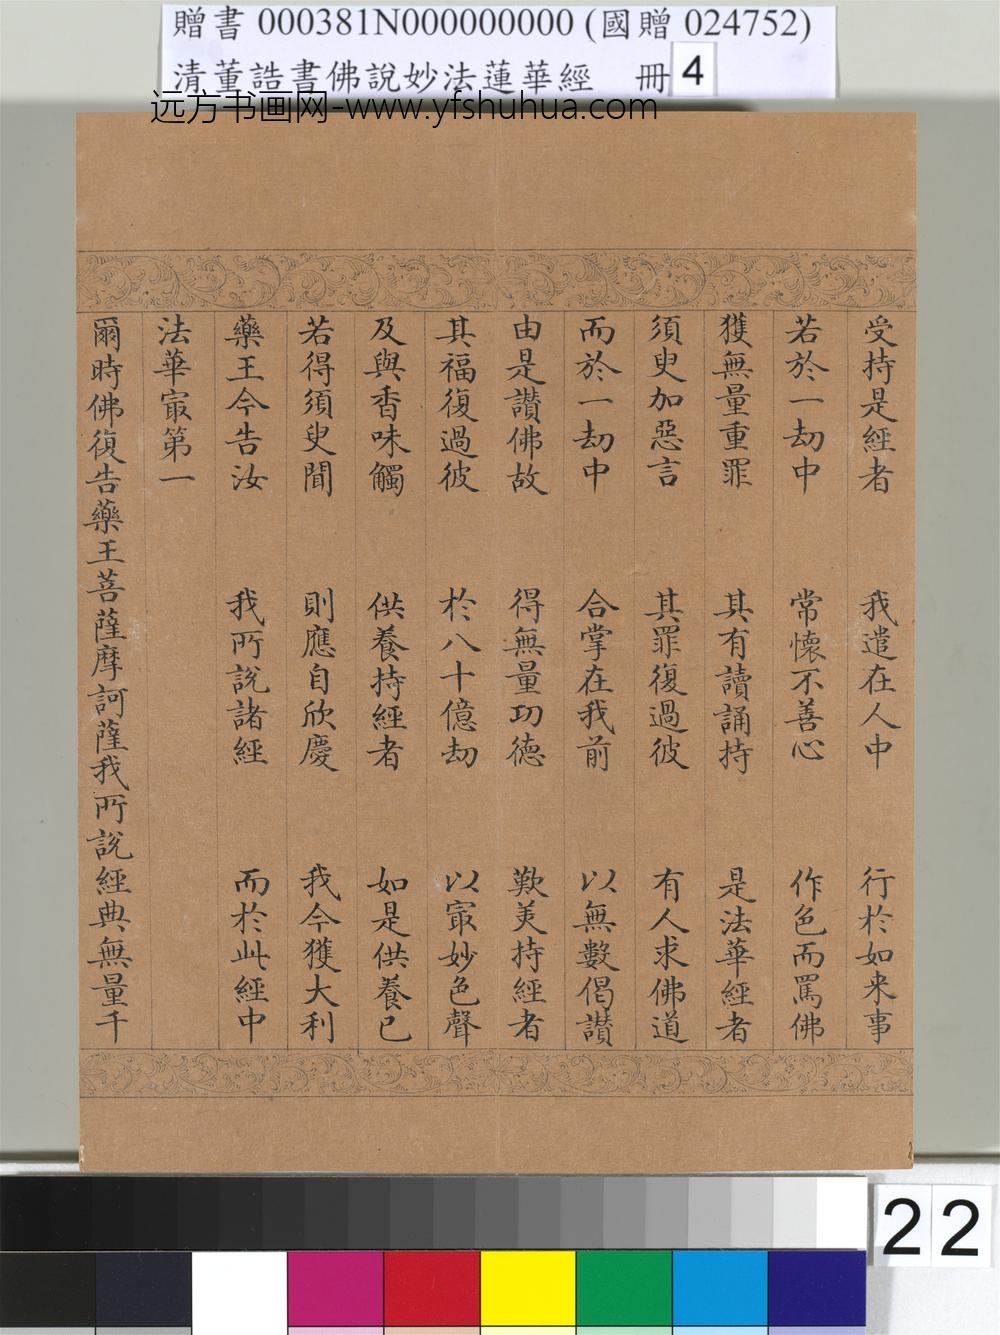 贈書 000381N000000000 (國贈 024752)
清董誥書佛說妙法蓮華經 冊 4
远方书画网-www.yfshuhua.com
受持是經者 我遣在人中 行於如来事
若於一劫中 常懷不善心 作色而罵佛
獲無量重罪 其有讀誦持 是法華經者
須臾加惡言 其罪復過彼 有人求佛道
而於一劫中 合掌在我前 以無數偈讃
由是讃佛故 得無量功德 歎美持經者
其福復過彼 於八十億劫 以㝡妙色聲
及與香味觸 供養持經者 如是供養已
若得須臾聞 則應自欣慶 我今獲大利
藥王今告汝 我所說諸經 而於此經中
法華㝡第一
爾時佛復告藥王菩薩摩訶薩我所說經典無量千
22